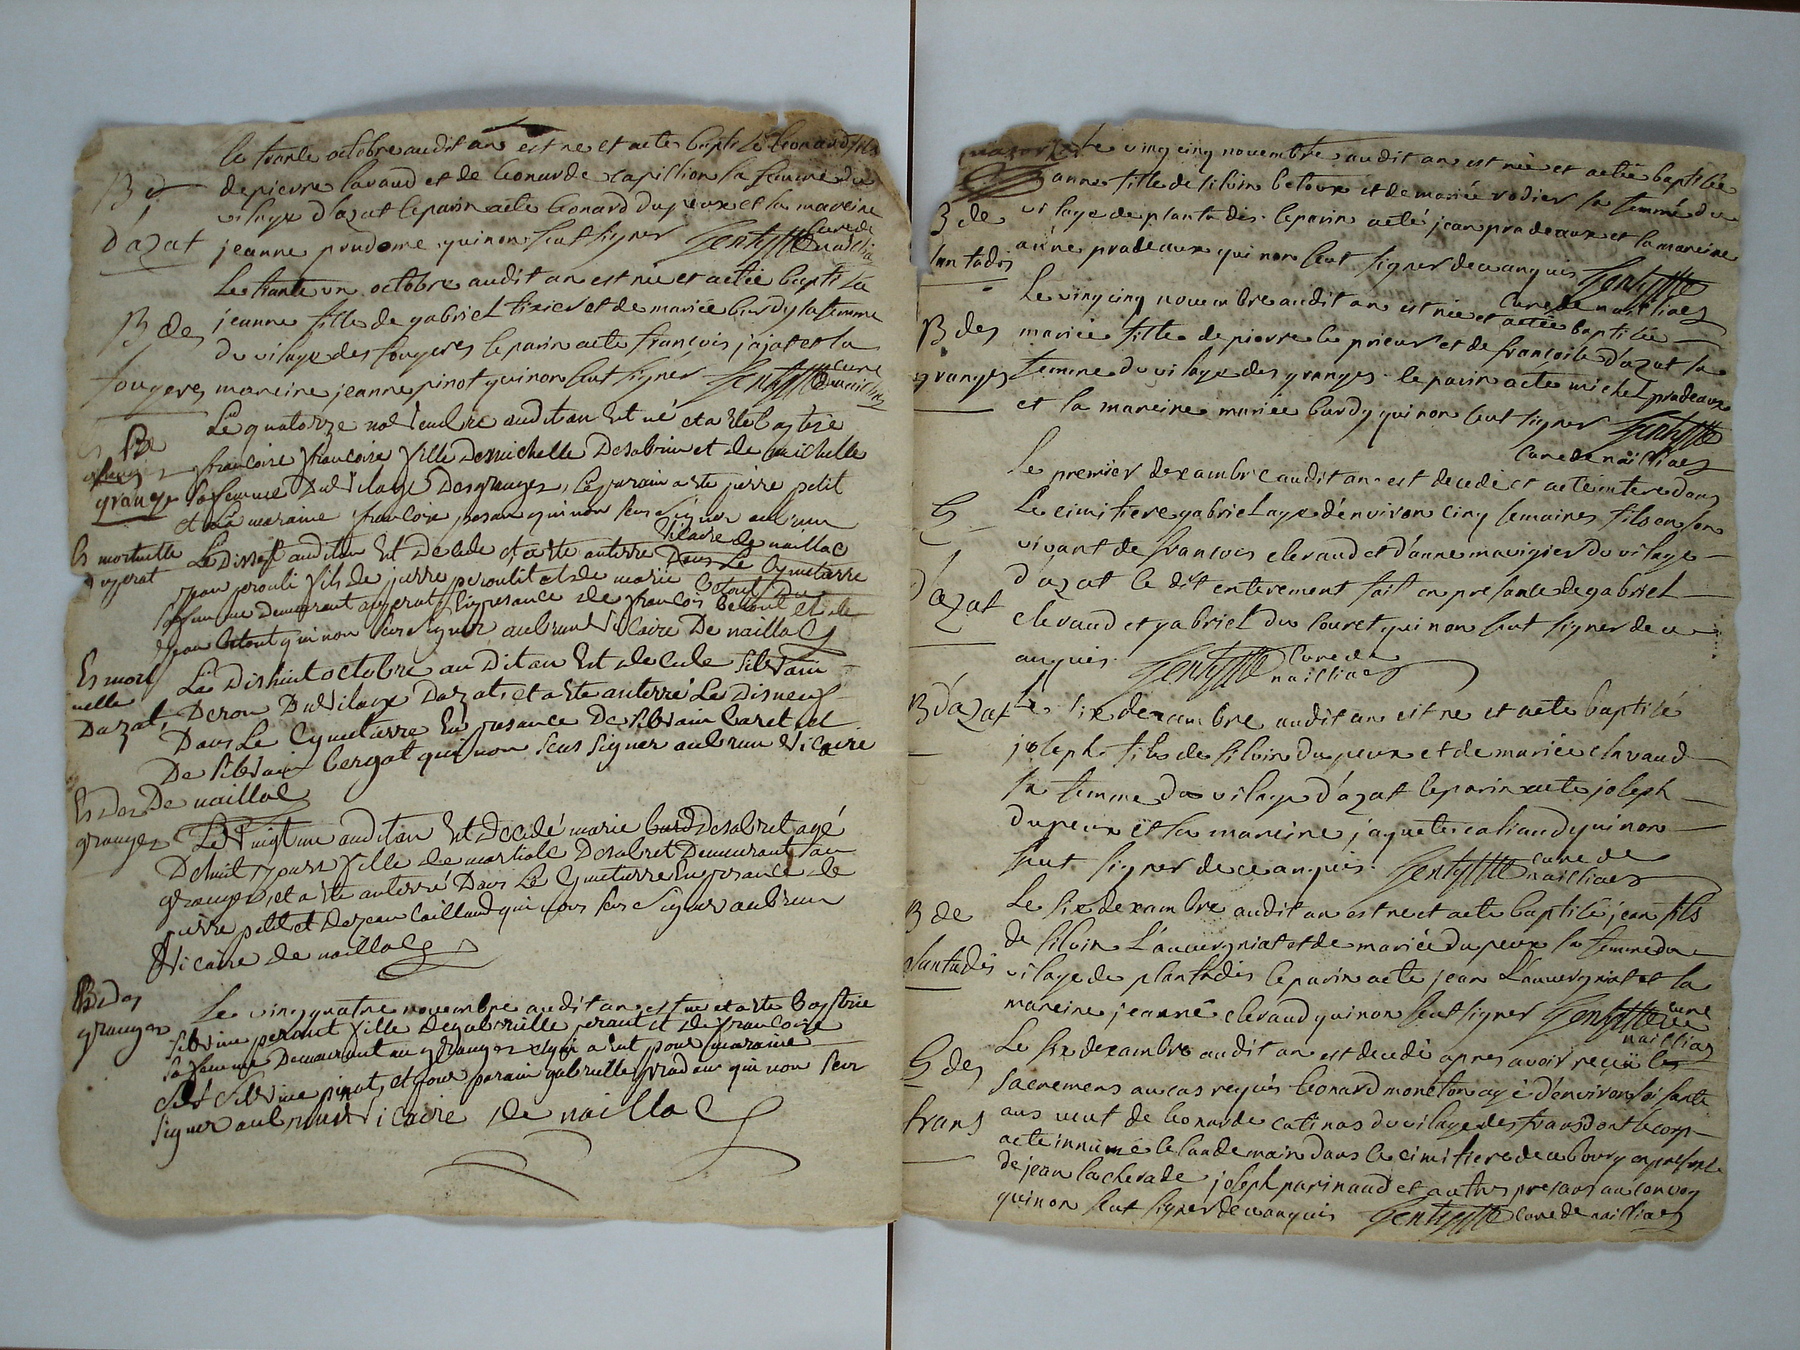 le trante octobre audit an est ne et aete baptisé leonard fils
B d
de pierre lavaud et de leonarde rapillion sa femme du
vilage d'azat le parin aete leonard dupeux et la mareine
d'azat
jeanne prudome qui non seut signer curé de naillac
Le trante un octobre audit an est née et aetée baptisée
B des
jeanne fille de gabriel tixier et de mariée burdy sa femme
du vilage des fougeres le parin aete françois jajat et la
fougeres
mareine jeanne pinot qui non seut signer curé de naillac
Le quatorze novembre audit an est né et a ete baptisé
françoise françoise fille de michelle desabrin et de michelle
grange
sa femme du vilage des granges, le parain a ete pierre petit
et la maraine françoise qui non seus signer aubrun
vicaire de naillac
Es mortuelle
Le audit an est decede et a ete anterré dans le cymetierre
dujerat
jean fils de pierre et de marie
sa femme demeurant en presance de françois betout et de
jean betout qui non seus signer aubrun vicaire de naillac
Es mortuelle
Le dishuit octobre audit an est decede silvain
Dazat
deron du vilage dazat, et a ete anterré le disneuf
dans le cymetierre en presance de silvain et
de silvain bergat qui non seus signer aubrun vicaire
Es des
de naillac
granges
Le vingt une audit an est decedé marie desabret agé
de huit jours fille de martiale desabret demeurant aux
granges, et a ete anterré dans le cymetierre en presance de
pierre petit et de jean caillaud qui nous seus signer aubrun
vicaire de naillac
B des
Le vingquatre novembre audit an est ne et a ete baptisée
granges
silvine perout fille de gabrielle perout et de françoise
sa femme demeurant au granges et qui a eut pour maraine
silvine pinot, et pour parain gabrielle pradeau qui non seus
signer aubrun vicaire de naillac
le vingcinq novembre audit an est née et aetée baptisée
anne fille de silvin betoux et de mariée rodier sa femme du
B de
vilage de plantadis. le parin aeté jean pradeaux et la mareine
lantadis
anne pradeaux qui non seut signer de ce anquis
curé de nailliac
Le vingcinq novembre audit an est née et aetée baptisée
B des
mariée fille de pierre le prieur et de françoise d'azat sa
granges
femme du vilage des granges. le parin aete michel pradeaux
et la mareine mariée burdy qui non seut signer
curé de nailliac
Le premier dexambre audit an est decedé et aete interé dans
Le cimitiere gabriel agé d'environ cinq semaines fils en son
vivant de françois clavaud et d'anne du vilage
d'azat
d'azat le dit enterement fait en presante de gabriel
clavaud et gabriel du couret qui non seut signer de ce
anquis curé de nailliac
B d'azat
Le six dexambre audit an est ne et aete baptisé
joseph fils de silvin dupeux et de mariée clavaud
sa femme du vilage d'azat le parin aete joseph
dupeux et la mareine jaquete caliaud qui non
seut signer de ce anquis curé de nailliac
B de
Le six dexambre audit an est ne et aete baptisé jean fils
de silvin L'auvergniat et de mariée dupeux sa femme du
plantadis
vilage de plantadis le parin aete jean L'auvergniat et la
mareine jeanne clavaud qui non seut signer curé de
nailliac
des
Le six dexambre audit an est decedé apres avoir reçu les
sacremens au cas requis leonard moneton agé d'environ soisante
frans
ans veuf de leonarde catinas du vilage des frans dont le corp
aete innumé le landemain dans le cimitiere de ce bourg en presante
de jean lacherade joseph parinaud et autres presans au convoy
qui non seut signer de ce anquis curé de nailliac